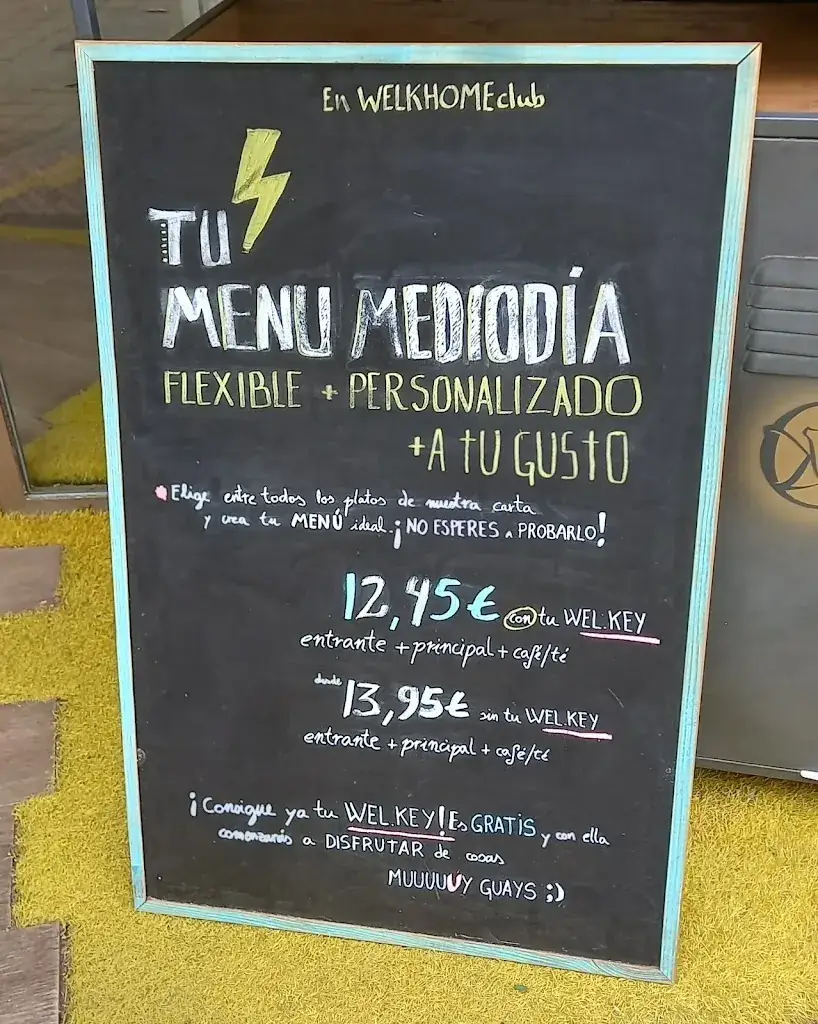 En WELKHOMEclub
TU
MENU MEDIODÍA
FLEXIBLE + PERSONALIZADO
+A TU GUSTO
Elige entre todos los platos de nuestra carta
y crea tu MENÚ ideal. ¡NO ESPERES A PROBARLO!
12,45€ con tu WEL.KEY
entrante + principal + café/té
desde 13,95€ sin tu WEL.KEY
entrante + principal + café/té
¡Consigue ya tu WEL.KEY! Es GRATIS y con ella
comenzarás a DISFRUTAR de cosas
MUUUUUY GUAYS ;)